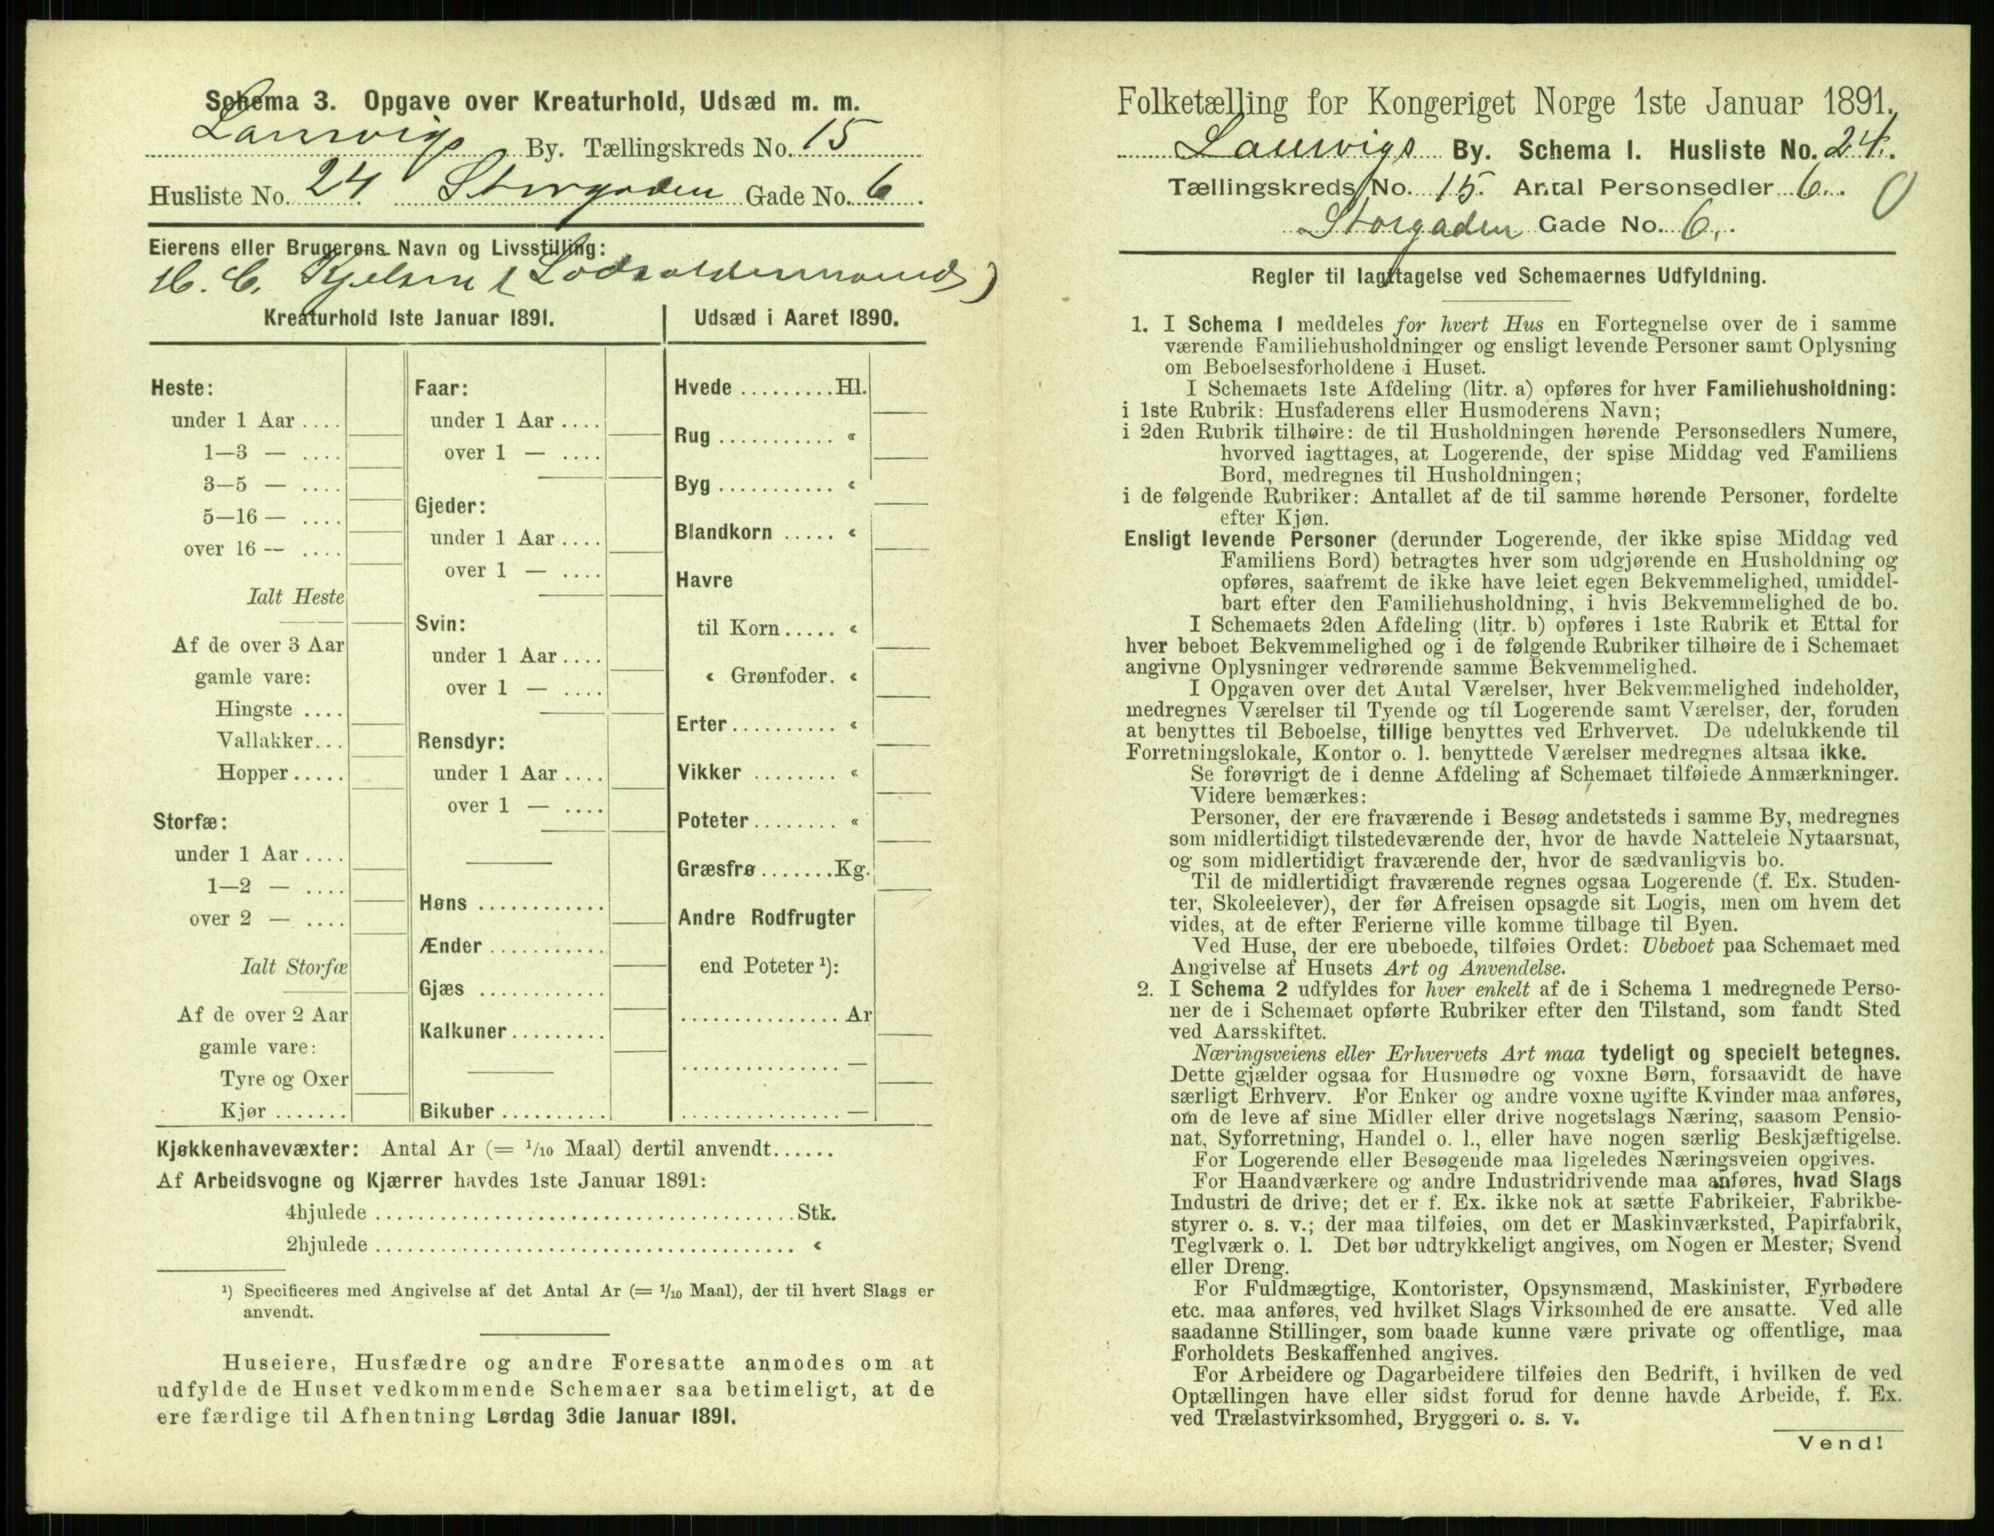 Schema 3. Opgave over Kreaturhold, Udsæd m. m.
Laurvigs By. Tællingskreds No. 15
Husliste No. 24 Storgaden Gade No. 6.
Eierens eller Brugerens Navn og Livsstilling:
H. C. Kjelsen (Lodsoldermand)
Kreaturhold 1ste Januar 1891.
Heste:
under 1 Aar ....
1—3 — ....
3—5 — ....
5—16 — ....
over 16 — ....
Ialt Heste
Af de over 3 Aar
gamle vare:
Hingste ....
Vallakker...
Hopper.....
Storfæ:
under 1 Aar ....
1—2 — ....
over 2 — ....
Ialt Storfæ
Af de over 2 Aar
gamle vare:
Tyre og Oxer
Kjør .......
Faar:
under 1 Aar ....
over 1 — ....
Gjeder:
under 1 Aar ....
over 1 — ....
Svin:
under 1 Aar ....
over 1 — ....
Rensdyr:
under 1 Aar ....
over 1 — ....
Høns ............
Ænder ...........
Gjæs ............
Kalkuner.........
Bikuber ..........
Udsæd i Aaret 1890.
Hvede .........Hl.
Rug ........... «
Byg ........... «
Blandkorn ..... «
Havre
til Korn..... «
« Grønfoder. «
Erter.......... «
Vikker ........ «
Poteter........ «
Græsfrø.......Kg.
Andre Rodfrugter
end Poteter ¹):
............... Ar
............... —
............... —
Kjøkkenhavevæxter: Antal Ar (= 1/10 Maal) dertil anvendt......
Af Arbeidsvogne og Kjærrer havdes 1ste Januar 1891:
4hjulede ........................................Stk.
2hjulede ........................................ «
¹) Specificeres med Angivelse af det Antal Ar (= 1/10 Maal), der til hvert Slags er
anvendt.
Huseiere, Husfædre og andre Foresatte anmodes om at
udfylde de Huset vedkommende Schemaer saa betimeligt, at de
ere færdige til Afhentning Lørdag 3die Januar 1891.
Folketælling for Kongeriget Norge 1ste Januar 1891.
Laurvigs By. Schema 1. Husliste No. 24.
Tællingskreds No. 15. Antal Personsedler 6. 0
Storgaden Gade No. 6.
Regler til Iagttagelse ved Schemaernes Udfyldning.
1. I Schema 1 meddeles for hvert Hus en Fortegnelse over de i samme
værende Familiehusholdninger og ensligt levende Personer samt Oplysning
om Beboelsesforholdene i Huset.
I Schemaets 1ste Afdeling (litr. a) opføres for hver Familiehusholdning:
i 1ste Rubrik: Husfaderens eller Husmoderens Navn;
i 2den Rubrik tilhøire: de til Husholdningen hørende Personsedlers Numere,
hvorved iagttages, at Logerende, der spise Middag ved Familiens
Bord, medregnes til Husholdningen;
i de følgende Rubriker: Antallet af de til samme hørende Personer, fordelte
efter Kjøn.
Ensligt levende Personer (derunder Logerende, der ikke spise Middag ved
Familiens Bord) betragtes hver som udgjørende en Husholdning og
opføres, saafremt de ikke have leiet egen Bekvemmelighed, umiddel-
bart efter den Familiehusholdning, i hvis Bekvemmelighed de bo.
I Schemaets 2den Afdeling (litr. b) opføres i 1ste Rubrik et Ettal for
hver beboet Bekvemmelighed og i de følgende Rubriker tilhøire de i Schemaet
angivne Oplysninger vedrørende samme Bekvemmelighed.
I Opgaven over det Antal Værelser, hver Bekvemmelighed indeholder,
medregnes Værelser til Tyende og til Logerende samt Værelser, der, foruden
at benyttes til Beboelse, tillige benyttes ved Erhvervet. De udelukkende til
Forretningslokale, Kontor o. l. benyttede Værelser medregnes altsaa ikke.
Se forøvrigt de i denne Afdeling af Schemaet tilføiede Anmærkninger.
Videre bemærkes:
Personer, der ere fraværende i Besøg andetsteds i samme By, medregnes
som midlertidigt tilstedeværende der, hvor de havde Natteleie Nytaarsnat,
og som midlertidigt fraværende der, hvor de sædvanligvis bo.
Til de midlertidigt fraværende regnes ogsaa Logerende (f. Ex. Studen-
ter, Skoleelever), der før Afreisen opsagde sit Logis, men om hvem det
vides, at de efter Ferierne ville komme tilbage til Byen.
Ved Huse, der ere ubeboede, tilføies Ordet: Ubeboet paa Schemaet med
Angivelse af Husets Art og Anvendelse.
2. I Schema 2 udfyldes for hver enkelt af de i Schema 1 medregnede Perso-
ner de i Schemaet opførte Rubriker efter den Tilstand, som fandt Sted
ved Aarsskiftet.
Næringsveiens eller Erhvervets Art maa tydeligt og specielt betegnes.
Dette gjælder ogsaa for Husmødre og voxne Børn, forsaavidt de have
særligt Erhverv. For Enker og andre voxne ugifte Kvinder maa anføres,
om de leve af sine Midler eller drive nogetslags Næring, saasom Pensio-
nat, Syforretning, Handel o. l., eller have nogen særlig Beskjæftigelse.
For Logerende eller Besøgende maa ligeledes Næringsveien opgives.
For Haandværkere og andre Industridrivende maa anføres, hvad Slags
Industri de drive; det er f. Ex. ikke nok at sætte Fabrikeier, Fabrikbe-
styrer o. s. v.; der maa tilføies, om det er Maskinværksted, Papirfabrik,
Teglværk o. l. Det bør udtrykkeligt angives, om Nogen er Mester, Svend
eller Dreng.
For Fuldmægtige, Kontorister, Opsynsmænd, Maskinister, Fyrbødere
etc. maa anføres, ved hvilket Slags Virksomhed de ere ansatte. Ved alle
saadanne Stillinger, som baade kunne være private og offentlige, maa
Forholdets Beskaffenhed angives.
For Arbeidere og Dagarbeidere tilføies den Bedrift, i hvilken de ved
Optællingen have eller sidst forud for denne havde Arbeide, f. Ex.
ved Trælastvirksomhed, Bryggeri o. s. v.
Vend!